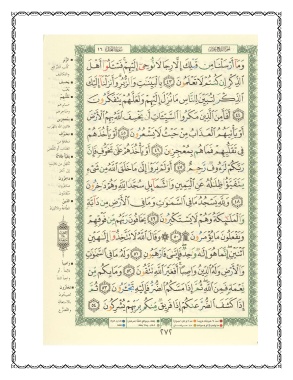 وَمَآ أَرْسَلْنَا مِن قَبْلِكَ إِلَّا رِجَالًا نُّوحِىٓ إِلَيْهِمْ فَسْـَٔلُوٓا۟ أَهْلَ
ٱلذِّكْرِ إِن كُنتُمْ لَا تَعْلَمُونَ ٤٣ بِٱلْبَيِّنَـٰتِ وَٱلزُّبُرِ وَأَنزَلْنَآ إِلَيْكَ
ٱلذِّكْرَ لِتُبَيِّنَ لِلنَّاسِ مَا نُزِّلَ إِلَيْهِمْ وَلَعَلَّهُمْ يَتَفَكَّرُونَ ٤٤
أَفَأَمِنَ ٱلَّذِينَ مَكَرُوا۟ ٱلسَّيِّـَٔاتِ أَن يَخْسِفَ ٱللَّهُ بِهِمُ ٱلْأَرْضَ
أَوْ يَأْتِيَهُمُ ٱلْعَذَابُ مِنْ حَيْثُ لَا يَشْعُرُونَ ٤٥ أَوْ يَأْخُذَهُمْ
فِى تَقَلُّبِهِمْ فَمَا هُم بِمُعْجِزِينَ ٤٦ أَوْ يَأْخُذَهُمْ عَلَىٰ تَخَوُّفٍ فَإِنَّ
رَبَّكُمْ لَرَءُوفٌ رَّحِيمٌ ٤٧ أَوَلَمْ يَرَوْا۟ إِلَىٰ مَا خَلَقَ ٱللَّهُ مِن شَىْءٍ
يَتَفَيَّؤُا۟ ظِلَـٰلُهُۥ عَنِ ٱلْيَمِينِ وَٱلشَّمَآئِلِ سُجَّدًا لِّلَّهِ وَهُمْ دَٰخِرُونَ
٤٨ وَلِلَّهِ يَسْجُدُ مَا فِى ٱلسَّمَـٰوَٰتِ وَمَا فِى ٱلْأَرْضِ مِن دَآبَّةٍ
وَٱلْمَلَـٰٓئِكَةُ وَهُمْ لَا يَسْتَكْبِرُونَ ٤٩ يَخَافُونَ رَبَّهُم مِّن فَوْقِهِمْ
وَيَفْعَلُونَ مَا يُؤْمَرُونَ ۩ ٥٠ وَقَالَ ٱللَّهُ لَا تَتَّخِذُوٓا۟ إِلَـٰهَيْنِ
ٱثْنَيْنِ إِنَّمَا هُوَ إِلَـٰهٌ وَٰحِدٌ فَإِيَّـٰىَ فَٱرْهَبُونِ ٥١ وَلَهُۥ مَا فِى ٱلسَّمَـٰوَٰتِ
وَٱلْأَرْضِ وَلَهُ ٱلدِّينُ وَاصِبًا أَفَغَيْرَ ٱللَّهِ تَتَّقُونَ ٥٢ وَمَا بِكُم مِّن
نِّعْمَةٍ فَمِنَ ٱللَّهِ ثُمَّ إِذَا مَسَّكُمُ ٱلضُّرُّ فَإِلَيْهِ تَجْـَٔرُونَ ٥٣ ثُمَّ
إِذَا كَشَفَ ٱلضُّرَّ عَنكُمْ إِذَا فَرِيقٌ مِّنكُم بِرَبِّهِمْ يُشْرِكُونَ ٥٤
٢٧٢